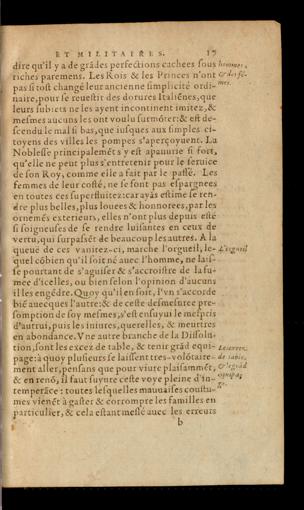 ET MILITAIRES. 17
dire qu'il y a de grãdes perfections cachees sous
riches paremens. Les Rois & les Princes n'ont
pas si tost changé leur ancienne simplicité ordi-
naire, pour se reuestir des dorures Italiénes, que
leurs subiets ne les ayent incontinent imitez, &
mesmes aucuns les ont voulu surmõter: & est de-
scendu le mal si bas, que iusques aux simples ci-
toyens des villes les pompes s'aperçoyent. La
Noblesse principalemẽt s'y est apauurie si fort,
qu'elle ne peut plus s'entretenir pour le seruice
de son Roy, comme elle a fait par le passé. Les
femmes de leur costé, ne se sont pas espargnees
en toutes ces superfluitez: car ayãs estimé se ren-
dre plus belles, plus louees & honnorees, par les
ornemẽs exterieurs, elles n'ont plus depuis esté
si soigneuses de se rendre luisantes en ceux de
vertu, qui surpassẽt de beaucoup les autres. A la
queuë de ces vanitez-ci, marche l'orgueil, le-
quel cõbien qu'il soit né auec l'homme, ne lais-
se pourtant de s'aguiser & s'accroistre de la fu-
mee d'icelles, ou bien selon l'opinion d'aucuns
il les engẽdre. Quoy qu'il en soit, l'vn s'accorde
biẽ auecques l'autre: & de ceste desmesuree pre-
somption de soy mesmes, s'est ensuyui le mespris
d'autrui, puis les iniures, querelles, & meurtres
en abondance. Vne autre branche de la Dissolu-
tion, sont les excez de table, & tenir grãd equi-
page: à quoy plusieurs se laissent tres-volõtaire-
ment aller, pensans que pour viure plaisammẽt,
& en renõ, il faut suyure ceste voye pleine d'in-
temperãce: toutes lesquelles mauuaises coustu-
mes vienẽt à gaster & corrompre les familles en
particulier, & cela estant meslé auec les erreurs
b
hommes,
& des fẽ-
mes.
L'orgueil
de table,
& le grãd
equipa-
ge.